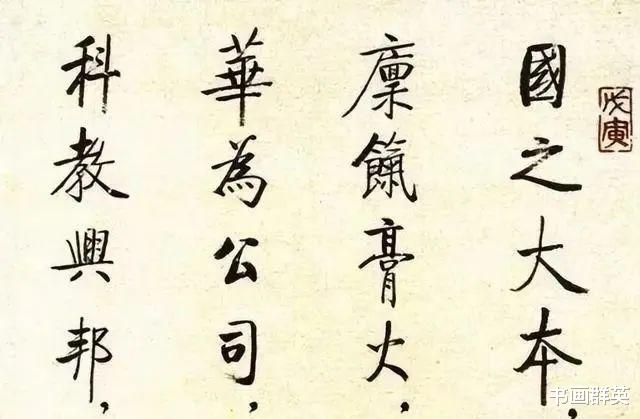 戊寅
國之大本，
廩餼膏火，
華為公司，
科教興邦，
书画群英